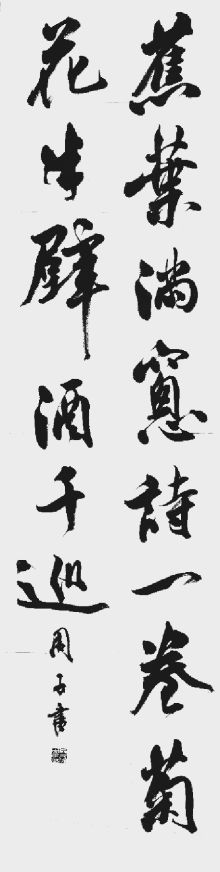 蕉葉滿窻詩一卷菊
花半壁酒千巡
周子書